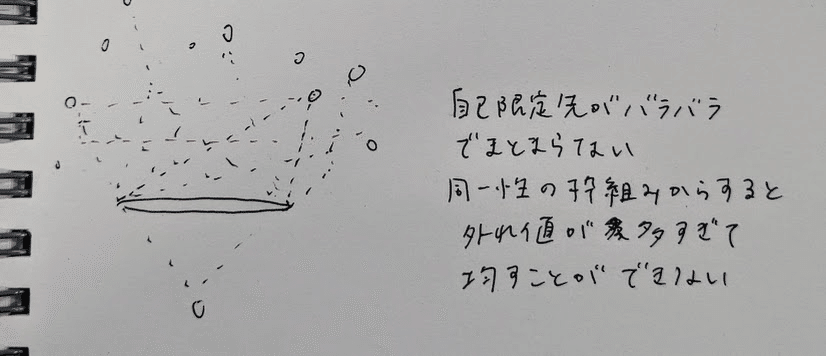 自己限定先がバラバラ
でまとまらない
同一性の枠組みからすると
外れ値が多すぎて
均すことができない